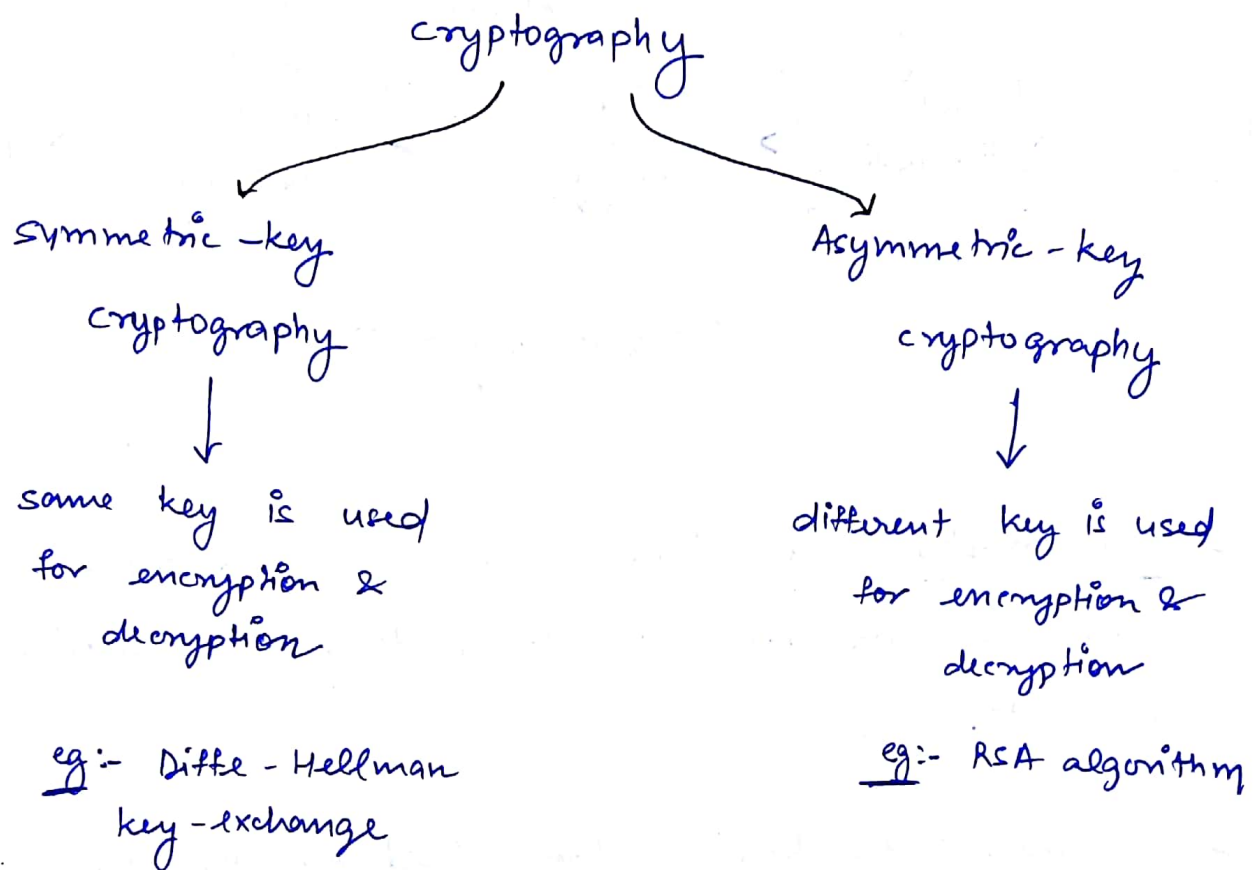 cryptography
symmetric-key
cryptography
same key is used
for encryption &
decryption
eg:- Diffe-Hellman
key-exchange
Asymmetric-key
cryptography
different key is used
for encryption &
decryption
eg:- RSA algorithm